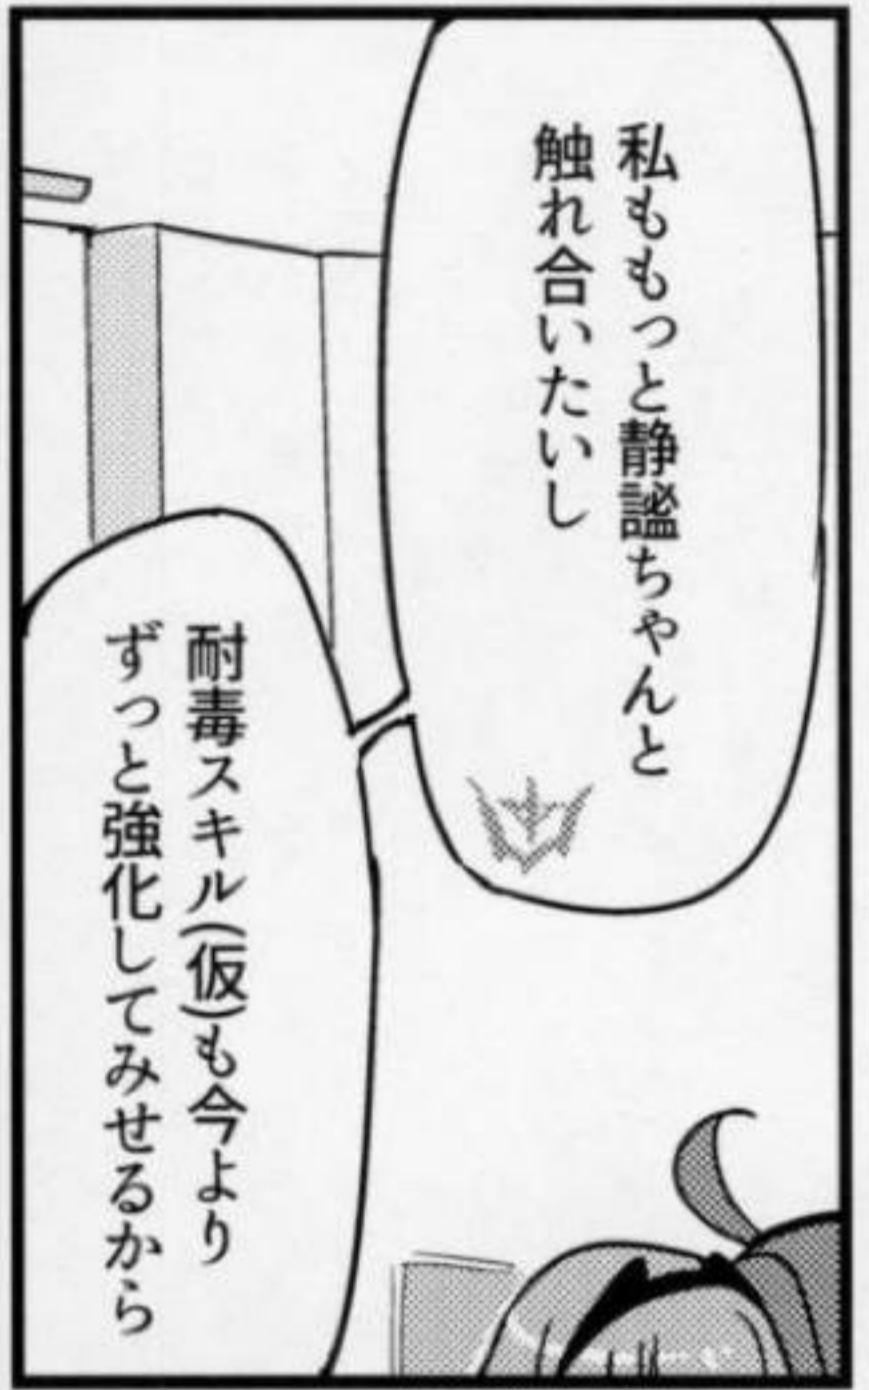 私ももっと静謐ちゃんと
触れ合いたいし
耐毒スキル(仮)も今より
ずっと強化してみせるから